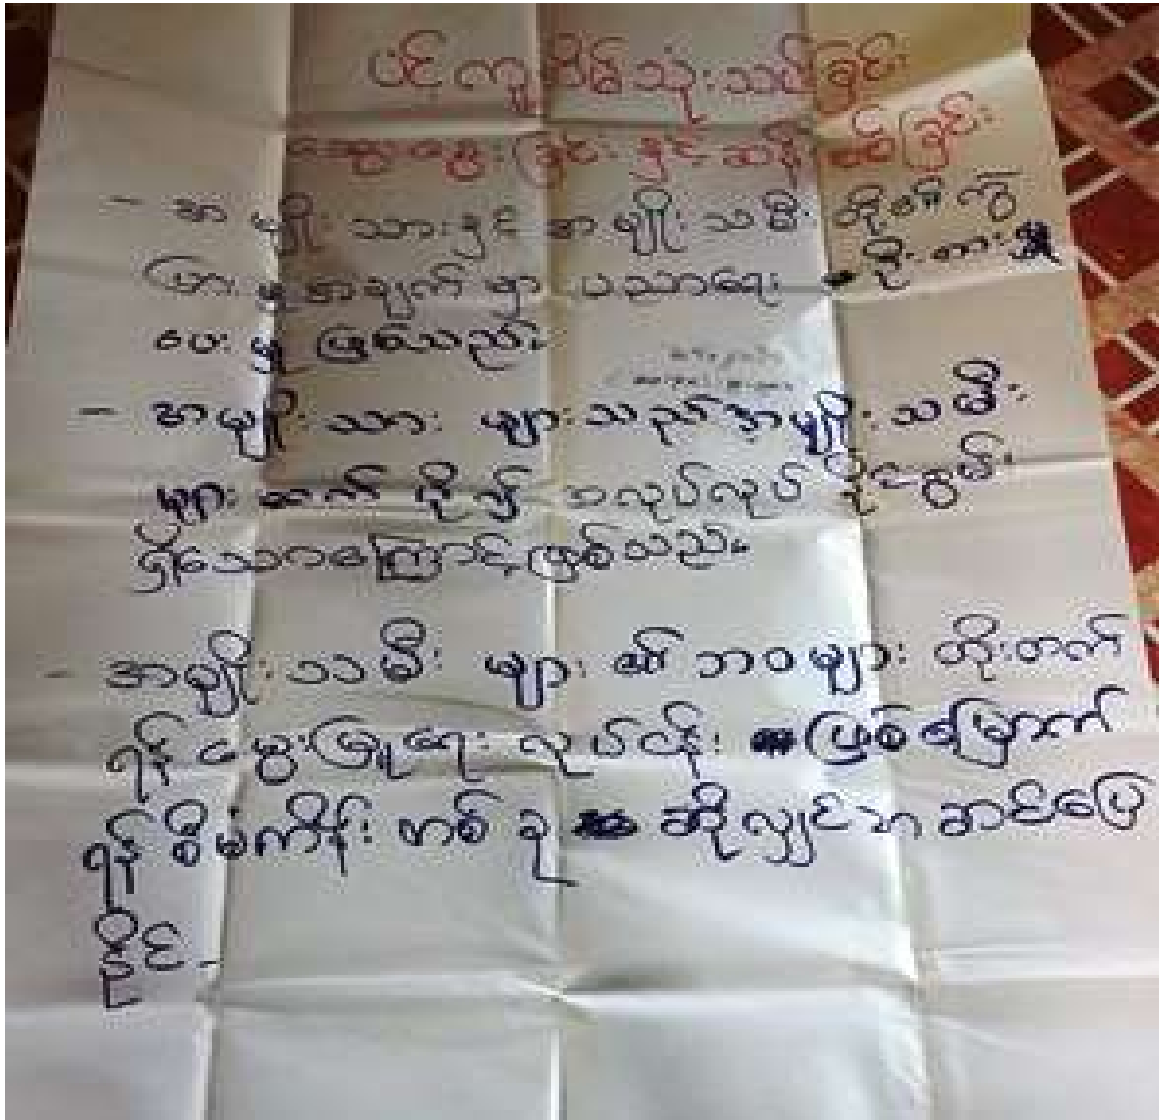 ပင့်ကူအိမ်သုံးသပ်ခြင်း
ဆွေးနွေးခြင်းနှင့်ဆန်းစစ်ခြင်း
- အမျိုးသားနှင့်အမျိုးသမီးတို့၏ကွဲ
ပြားမှုအချက်မှာ ပညာရေး ဦးစား
ပေးမှုဖြစ်သည်။
- အမျိုးသားများသည်အမျိုးသမီး
များထက်ပို၍အလုပ်လုပ်ပိုင်ခွင့်
ရှိသောကြောင့်ဖြစ်သည်။
- အမျိုးသမီးများ၏ဘဝများတိုးတက်
ရန်မွေးမြူရေးလုပ်ငန်းဖြစ်မြောက်
ရန်စီမံကိန်းတစ်ခုဆိုလျှင်သာဆင်ပြေ
နိုင်